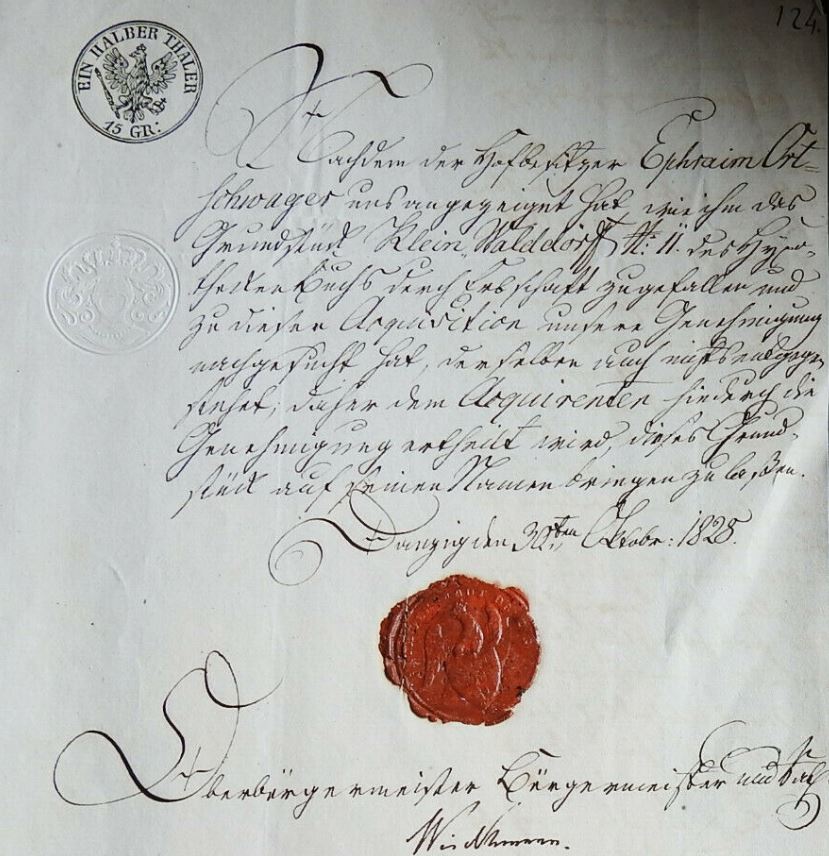 124.
EIN HALBER THALER
15 GR:
Nachdem der Hofbesitzer Ephraim Ort=
schwager uns angezeiget hat, wie ihm das
Grundstück Klein Walddorff №: 11. des Hypo-
theckenbuchs durch Erbschaft zugefallen und
zu dieser Acquisition unsere Genehmigung
nachgesucht hat, derselben auch nichts entgegen
stehet; daher dem Acquirenten hiedurch die
Genehmigung ertheilt wird, dieses Grund-
stück auf seinen Namen bringen zu laßen.
Danzig den 30ten Oktobr: 1828.
Oberbürgermeister Bürgermeister und Rath